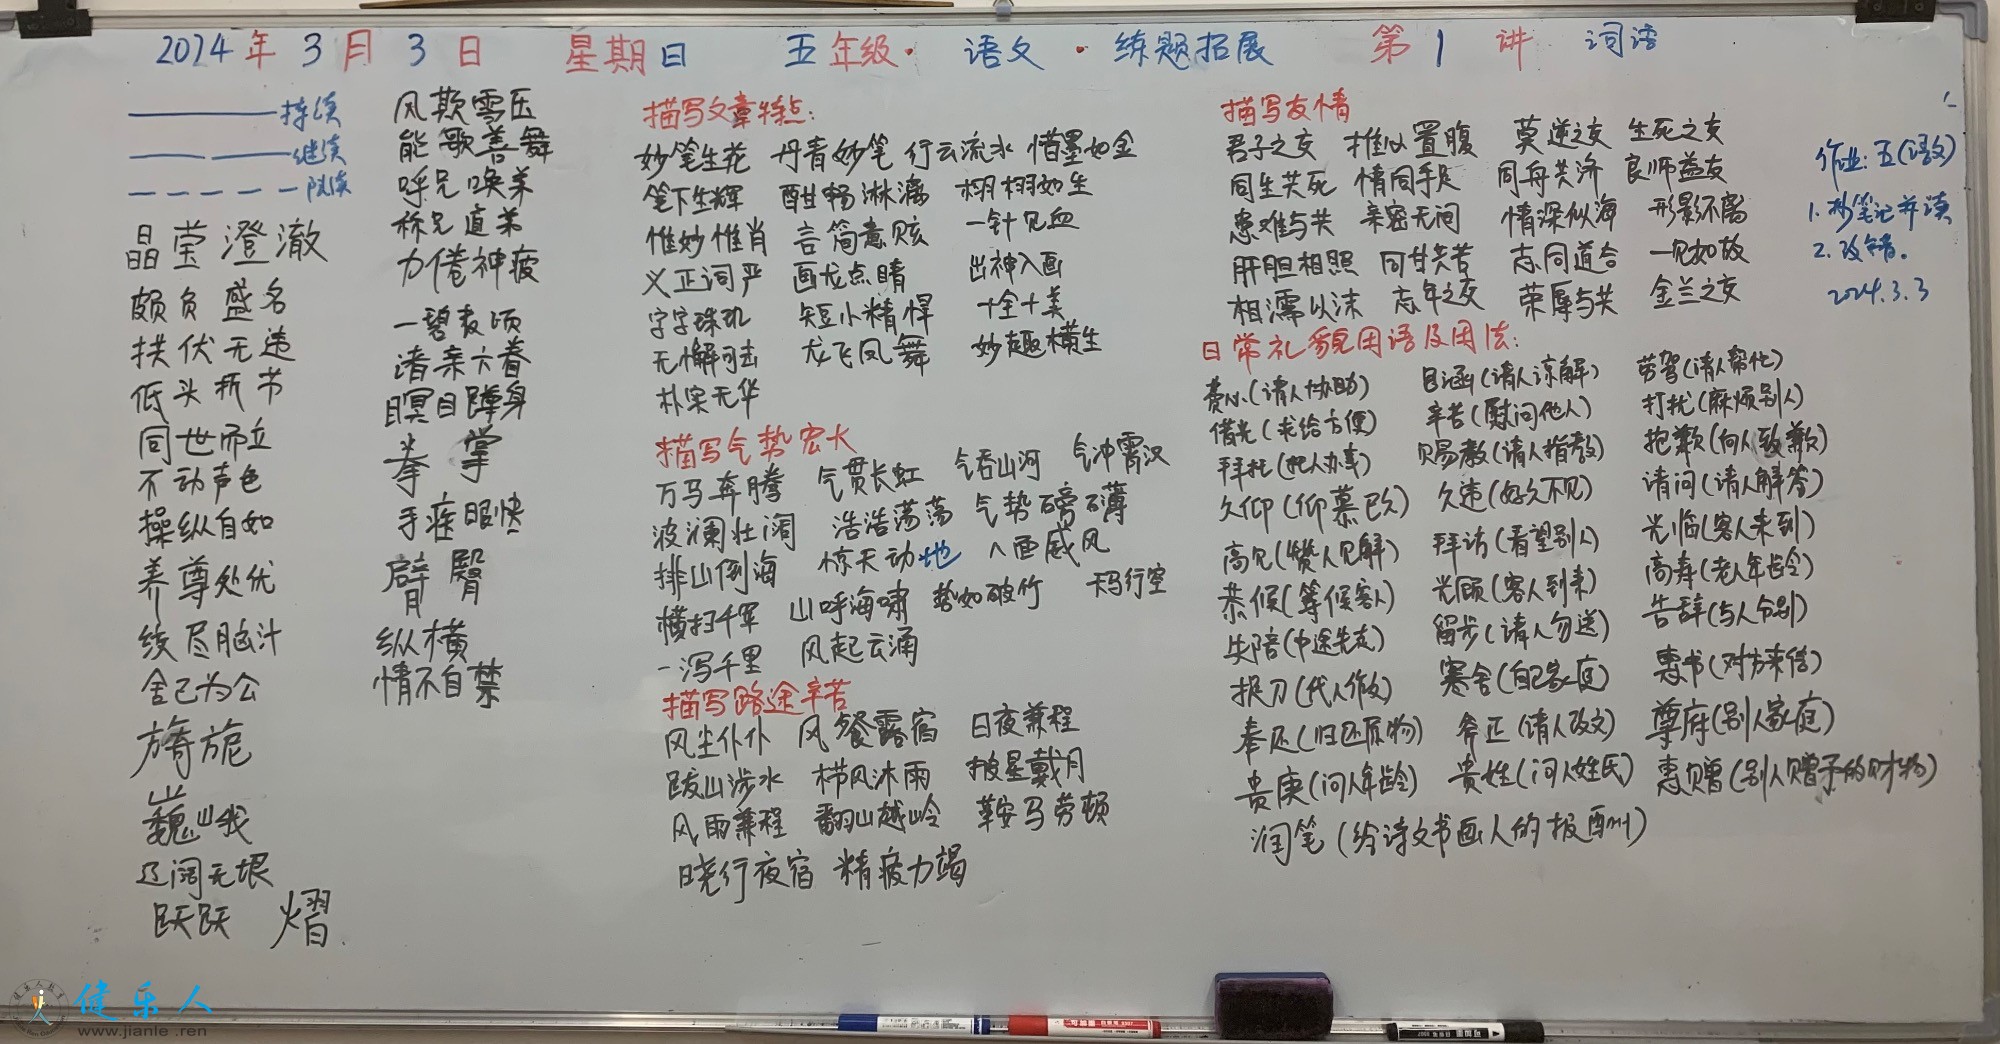 2024年3月3日 星期日 五年级·语文·练题拓展 第1讲 词语
持续
继续
断续
晶莹澄澈
颇负盛名
扶伏无违
低头折节
同世而立
不动声色
操纵自如
养尊处优
绞尽脑汁
舍己为公
旖旎
巍峨
辽阔无垠
跃跃 熠
风欺雪压
能歌善舞
呼兄唤弟
称兄道弟
力倦神疲
一碧万顷
诸亲六眷
瞑目蹲身
拳 掌
手疾眼快
臂 臀
纵横
情不自禁
描写文章特点:
妙笔生花 丹青妙笔 行云流水 惜墨如金
笔下生辉 酣畅淋漓 栩栩如生
惟妙惟肖 言简意赅 一针见血
义正词严 画龙点睛 出神入画
字字珠玑 短小精悍 十全十美
无懈可击 龙飞凤舞 妙趣横生
朴实无华
描写气势宏大
万马奔腾 气贯长虹 气吞山河 气冲霄汉
波澜壮阔 浩浩荡荡 气势磅礴
排山倒海 惊天动地 八面威风
横扫千军 山呼海啸 势如破竹 天马行空
一泻千里 风起云涌
描写路途辛苦
风尘仆仆 风餐露宿 日夜兼程
跋山涉水 栉风沐雨 披星戴月
风雨兼程 翻山越岭 鞍马劳顿
晓行夜宿 精疲力竭
描写友情
君子之交 推心置腹 莫逆之交 生死之交
同生共死 情同手足 同舟共济 良师益友
患难与共 亲密无间 情深似海 形影不离
肝胆相照 同甘共苦 志同道合 一见如故
相濡以沫 忘年之交 荣辱与共 金兰之交
日常礼貌用语及用法:
费心(请人协助) 包涵(请人谅解) 劳驾(请人帮忙)
借光(求给方便) 辛苦(慰问他人) 打扰(麻烦别人)
拜托(把人办事) 赐教(请人指教) 抱歉(向人致歉)
久仰(仰慕已久) 久违(好久不见) 请问(请人解答)
高见(赞人见解) 拜访(看望别人) 光临(客人来到)
恭候(等候客人) 光顾(客人到来) 高寿(老人年龄)
失陪(中途先走) 留步(请人勿送) 告辞(与人分别)
捉刀(代人作文) 寒舍(自己家庭) 惠书(对方来信)
奉还(归还原物) 斧正(请人改文) 尊府(别人家庭)
贵庚(问人年龄) 贵姓(问人姓氏) 惠赠(别人赠予的财物)
润笔(给诗文书画人的报酬)
作业:五(语文)
1.抄笔记并读
2.改错。
2024.3.3
健乐人
www.jianle.ren